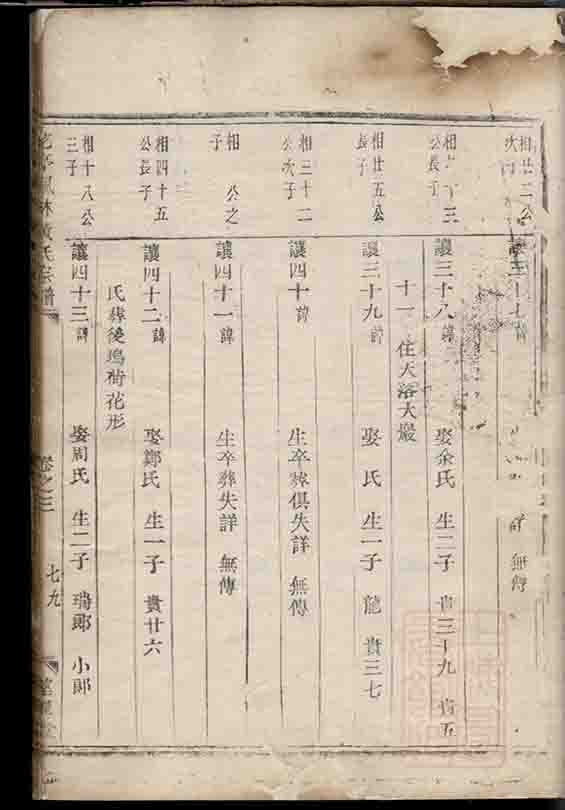 相廿二公
次
讓三十七諱
詳 無傳
相 十三
公長子
讓三十八諱 娶余氏 生二子 貴三十九 貴五
十一 住天浴大嚴
相廿五公
長子
讓三十九諱 娶 氏 生一子 龍 貴三七
相三十二
公次子
讓四十諱 生卒葬俱失詳 無傳
相 公之
子
讓四十一諱 生卒葬失詳 無傳
相四十五
公長子
讓四十二諱 娶鄭氏 生一子 貴廿六
氏葬後塢荷花形
相十八公
三子
讓四十三諱 娶周氏 生二子 瑞郎 小郎
黃氏宗譜 卷之三 七九